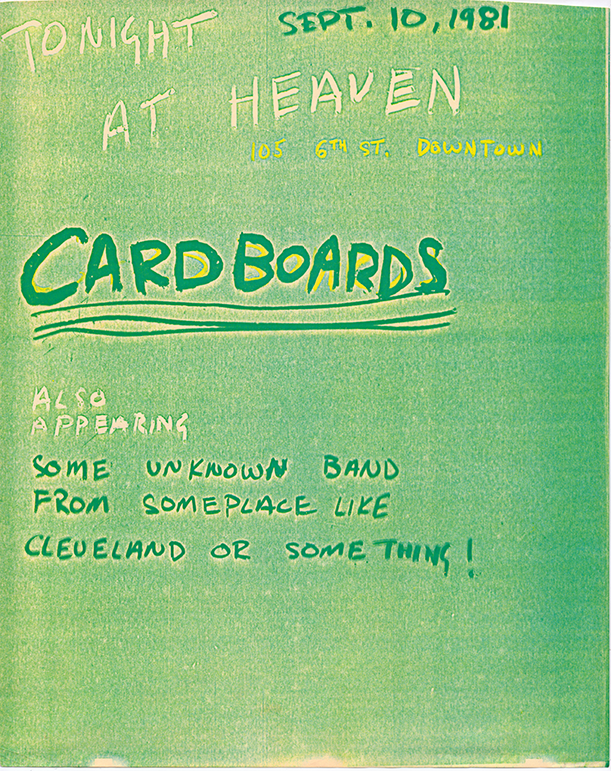 TONIGHT SEPT. 10, 1981
AT HEAVEN
105 6TH ST. DOWNTOWN
CARDBOARDS
ALSO
APPEARING
SOME UNKNOWN BAND
FROM SOMEPLACE LIKE
CLEVELAND OR SOMETHING!